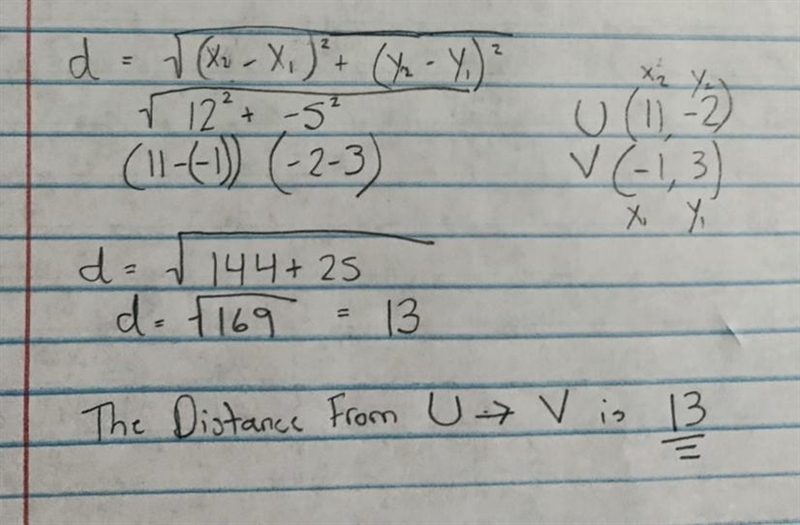 d = √(x₂ - x₁)² + (y₂ - y₁)²
√12² + -5²
(11-(-1)) (-2-3)
x₂ y₂
U (11, -2)
V (-1, 3)
x₁ y₁
d = √144 + 25
d = √169 = 13
The Distance From U → V is 13